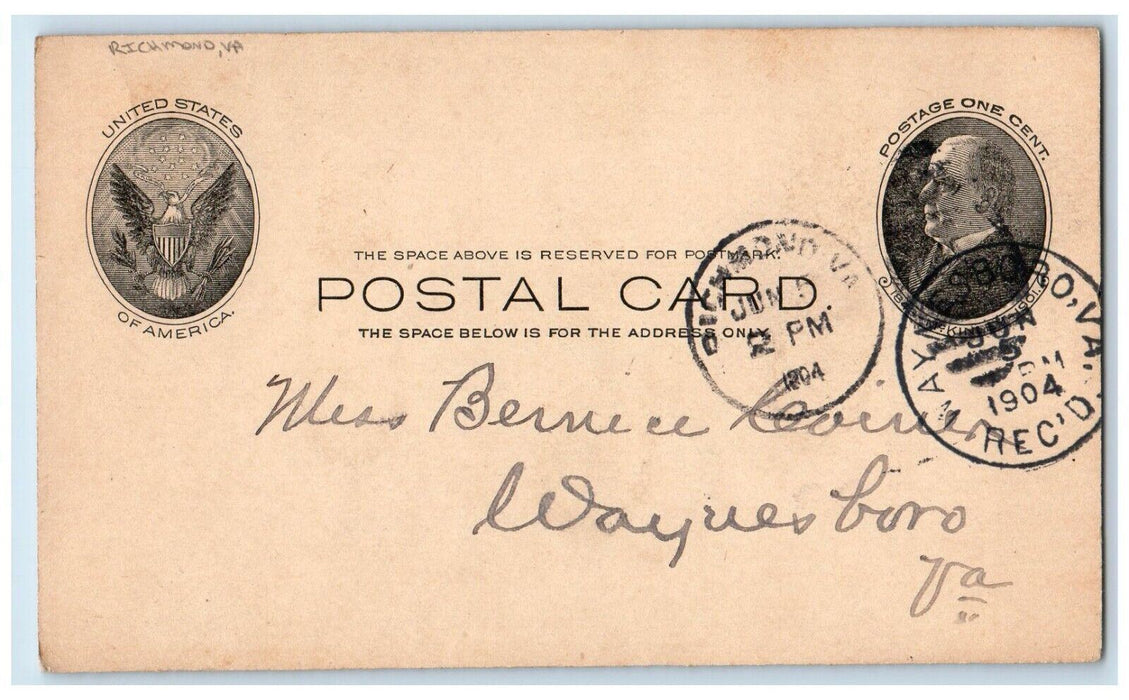 RICHMOND, VA
UNITED STATES
OF AMERICA.
POSTAGE ONE CENT.
THE SPACE ABOVE IS RESERVED FOR POSTMARK.
POSTAL CARD.
THE SPACE BELOW IS FOR THE ADDRESS ONLY.
RICHMOND VA
JUN 5
PM
1904
WAYNESBORO, VA.
JUN
5
PM
1904
REC'D.
Miss Bernice
Waynesboro
Va